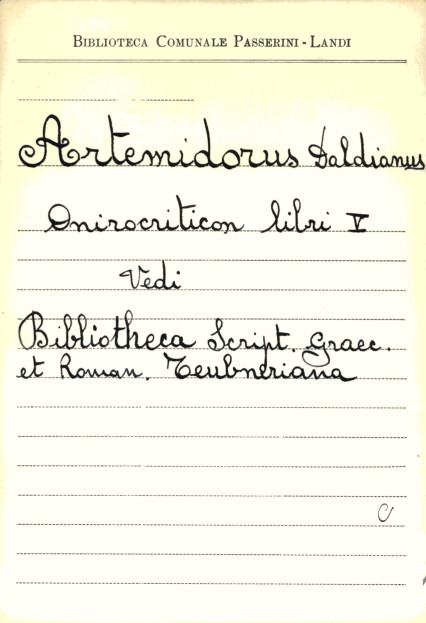 BIBLIOTECA COMUNALE PASSERINI - LANDI
Artemidorus Daldianus
Onirocriticon libri V
Vedi
Bibliotheca Script. Graec.
et Roman. Teubneriana
C